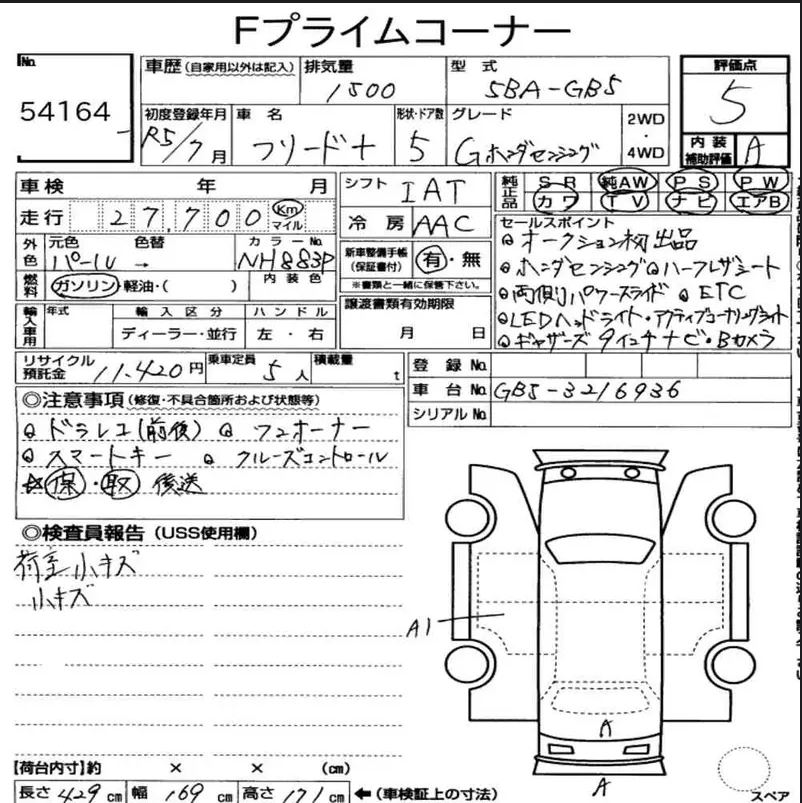 Fプライムコーナー
No. 54164
車歴 (自家用以外は記入)
排気量 1500
型式 5BA-GB5
評価点 5
初度登録年月 R5/7月
車名 フリード+
形状・ドア数 5
グレード Gホンダセンシング
2WD・4WD
内装補助評価 A
車検 年 月
シフト IAT
純正品 SR 純AW PS PW
カワ TV ナビ エアB
走行 27,700 Km マイル
冷房 AAC
セールスポイント
オークション初出品
外色 元色 パール 色替 → カラーNo. NH883P
新車整備手帳(保証書付) 有・無
※書類と一緒に保管下さい。
ホンダセンシング ハーフレザシート
燃料 ガソリン・軽油・( ) 内装色
両側パワースライド ETC
輸入車用 年式 輸入区分 ハンドル
譲渡書類有効期限
LEDヘッドライト・アクティブコーナリングライト
ディーラー・並行 左・右
月 日
ギャザーズ9インチナビ・Bカメラ
リサイクル預託金 11,420円 乗車定員 5人 積載量 t
登録No.
車台No. GB5-3216936
シリアルNo.
◎注意事項(修復・不具合箇所および状態等)
ドラレコ(前後) ワンオーナー
スマートキー クルーズコントロール
☆保・取 後送
◎検査員報告 (USS使用欄)
荷室小キズ
小キズ
A1
A
A
【荷台内寸】約 × × (cm)
長さ 429 cm 幅 169 cm 高さ 171 cm ←(車検証上の寸法)
スペア